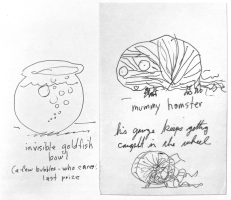 invisible goldfish
bowl
(a few bubbles - who cares)
last prize
mummy hamster
his gauze keeps getting
caught in the wheel